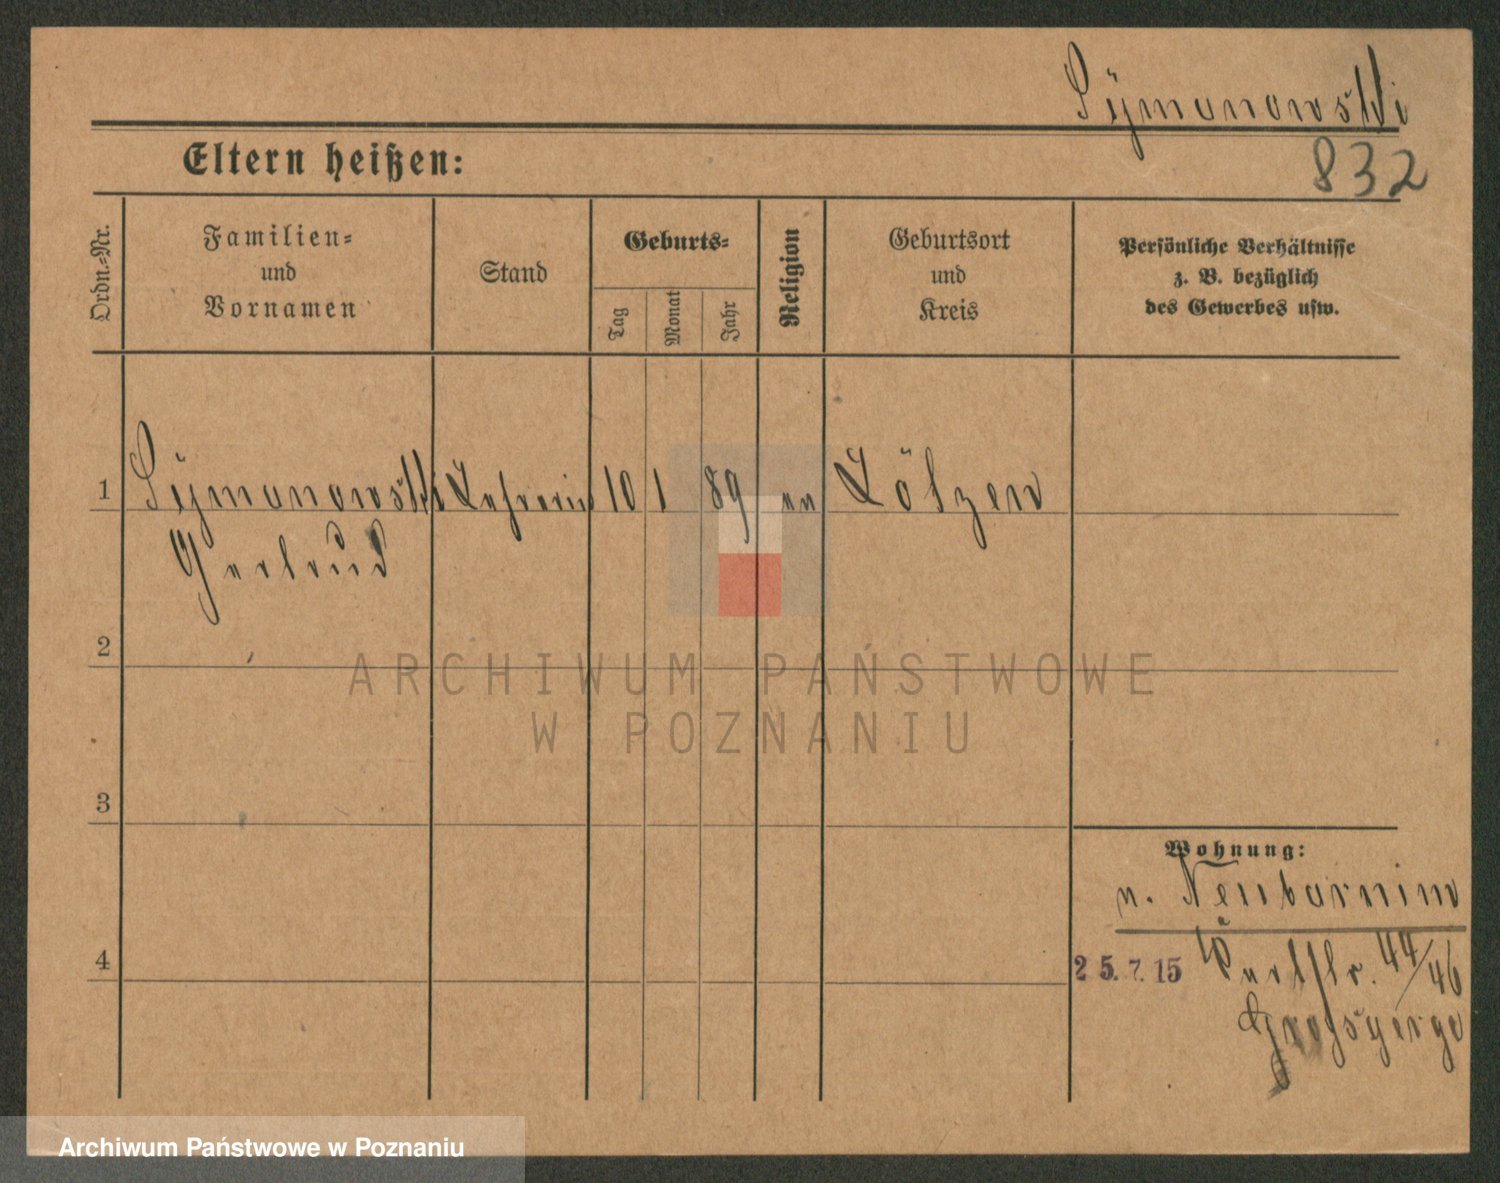 Sÿmanowski
832
Eltern heißen:
Ordn.-Nr.
Familien-
und
Vornamen
Stand
Geburts-
Tag
Monat
Jahr
Religion
Geburtsort
und
Kreis
Persönliche Verhältnisse
z. B. bezüglich
des Gewerbes usw.
1 Sÿmanowski Lehrerin 10 1 89 ev Lötzen
Gertrud
2
3
4
Wohnung:
n. Neubarnim
25.7.15 44/46
ARCHIWUM PAŃSTWOWE
W POZNANIU
Archiwum Państwowe w Poznaniu